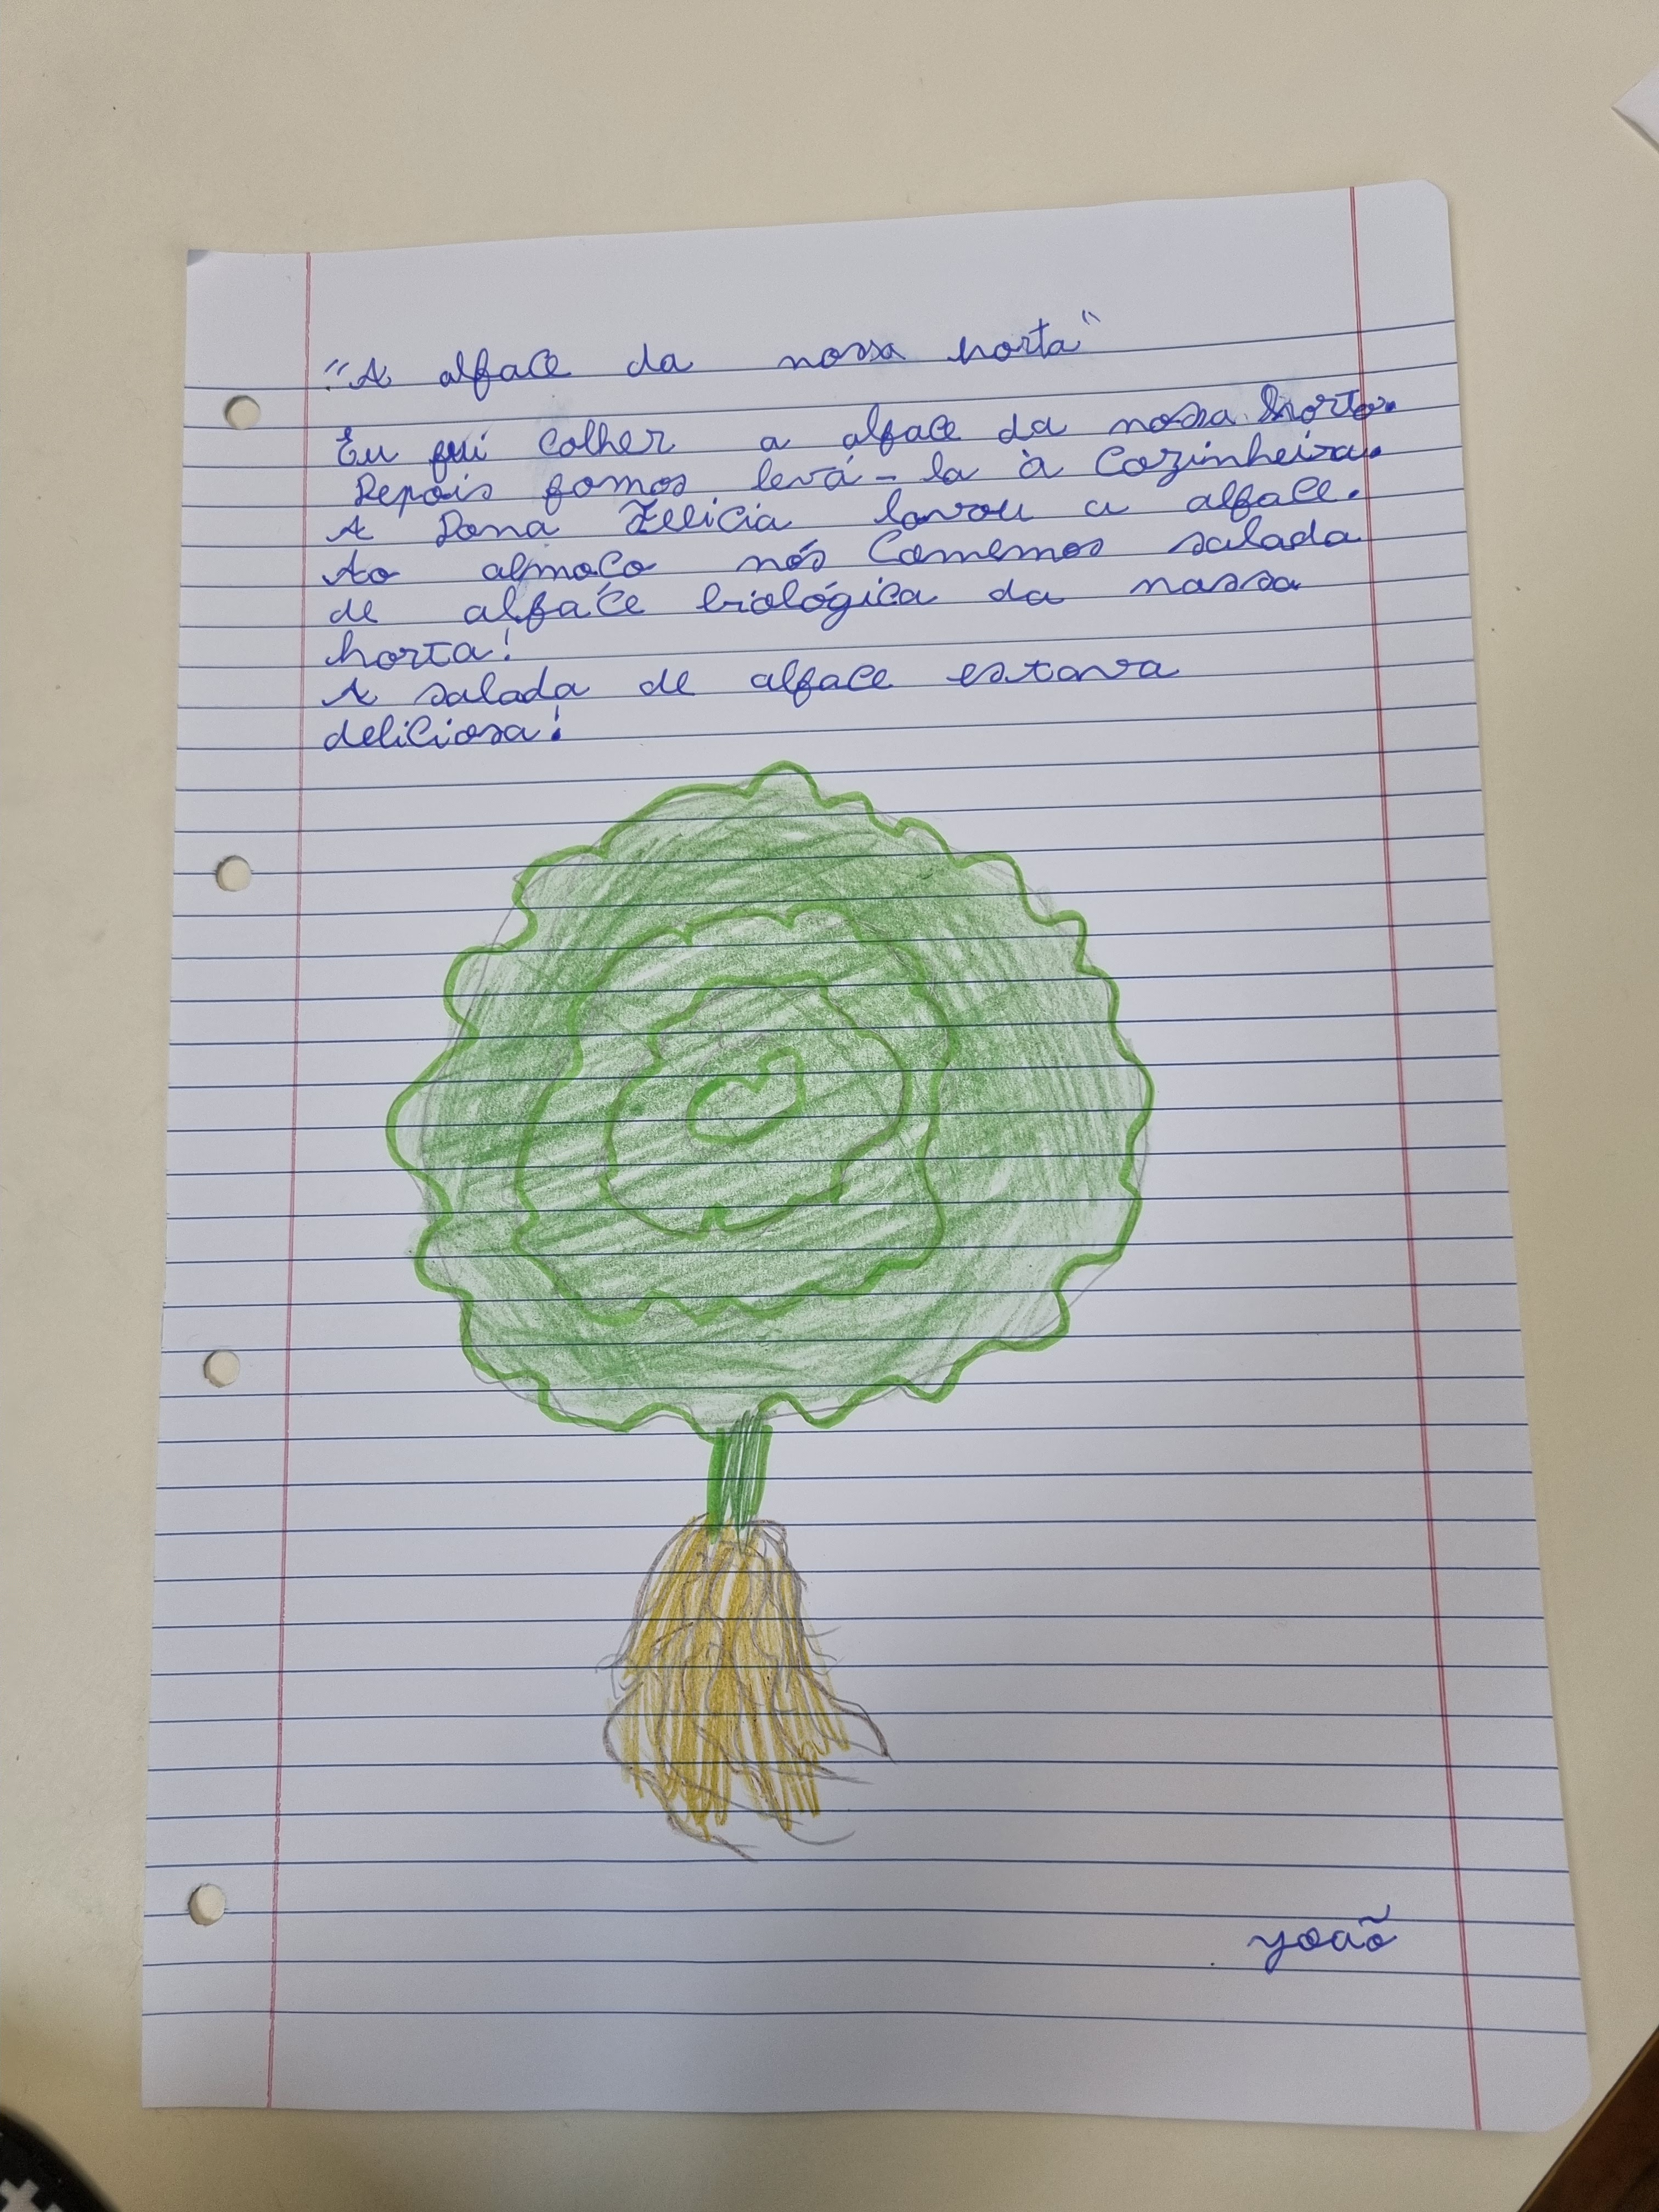 "A alface da nossa horta"
Eu fui colher a alface da nossa horta.
Depois fomos levá-la à cozinheira.
A Dona Felicia lavou a alface.
Ao almoço nós comemos salada
de alface biológica da nossa
horta!
A salada de alface estava
deliciosa!
João